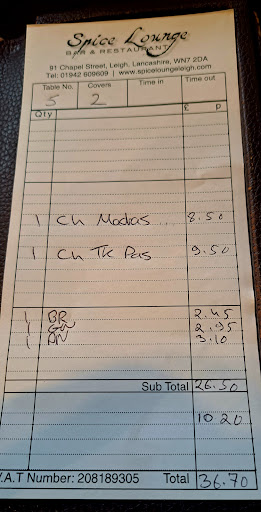 Spice Lounge
BAR & RESTAURANT
91 Chapel Street, Leigh, Lancashire, WN7 2DA
Tel: 01942 609609 | www.spiceloungeleigh.com
Table No. Covers Time in Time out
5 2
Qty £ p
1 Ch Madras 8.50
1 Ch Tk Pas 9.50
1 BR 2.45
1 GN 2.95
1 PN 3.10
Sub Total 26.50
10 20
V.A.T Number: 208189305 Total 36.70